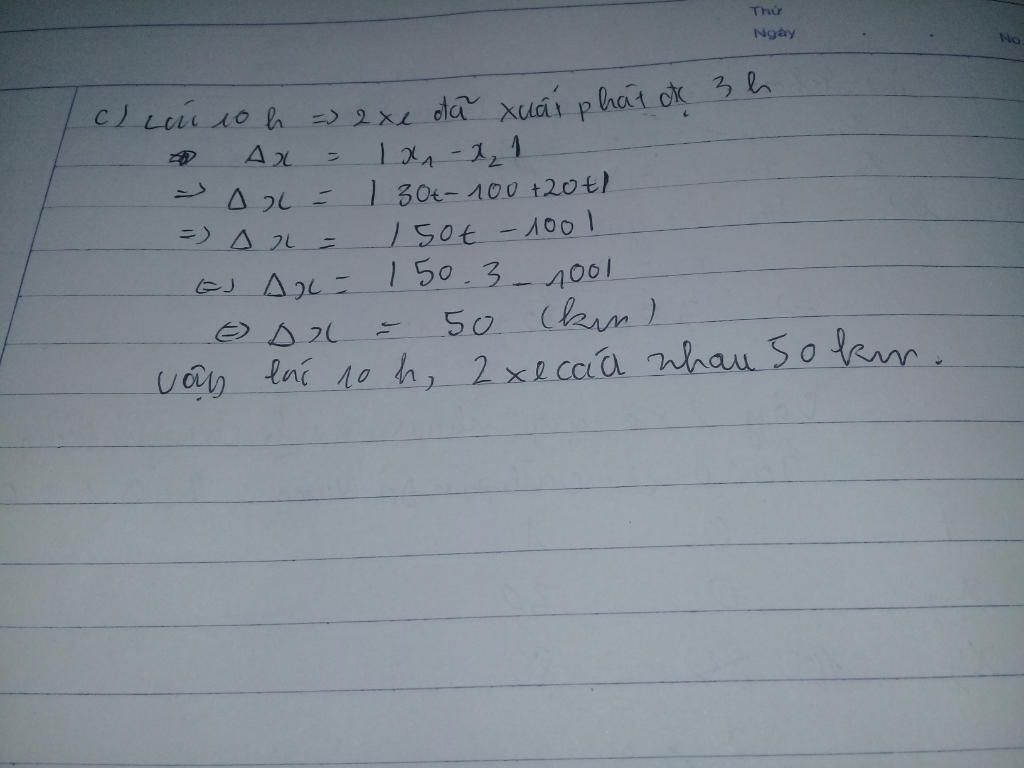 Thứ
Ngày . .
No
c) Lúc 10 h => 2 xe đã xuất phát đc 3 h
=> Δx = |x₁ - x₂|
=> Δx = |30t - 100 + 20t|
=> Δx = |50t - 100|
<=> Δx = |50.3 - 100|
<=> Δx = 50 (km)
Vậy lúc 10 h, 2 xe cách nhau 50 km.